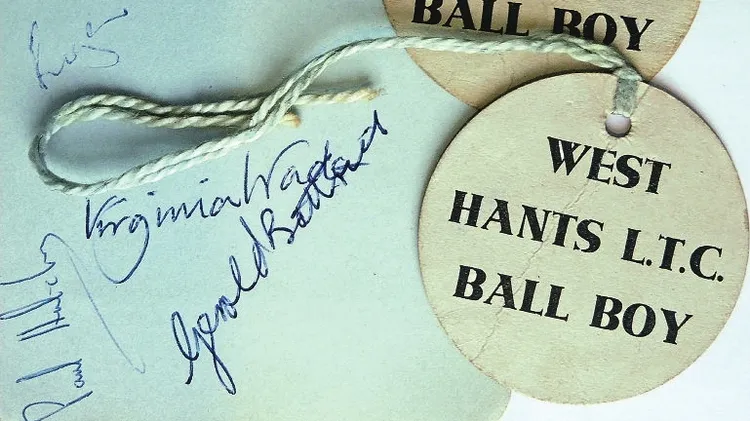 BALL BOY
WEST
HANTS L.T.C.
BALL BOY
Virginia Wade
Gerald Battrick
Paul